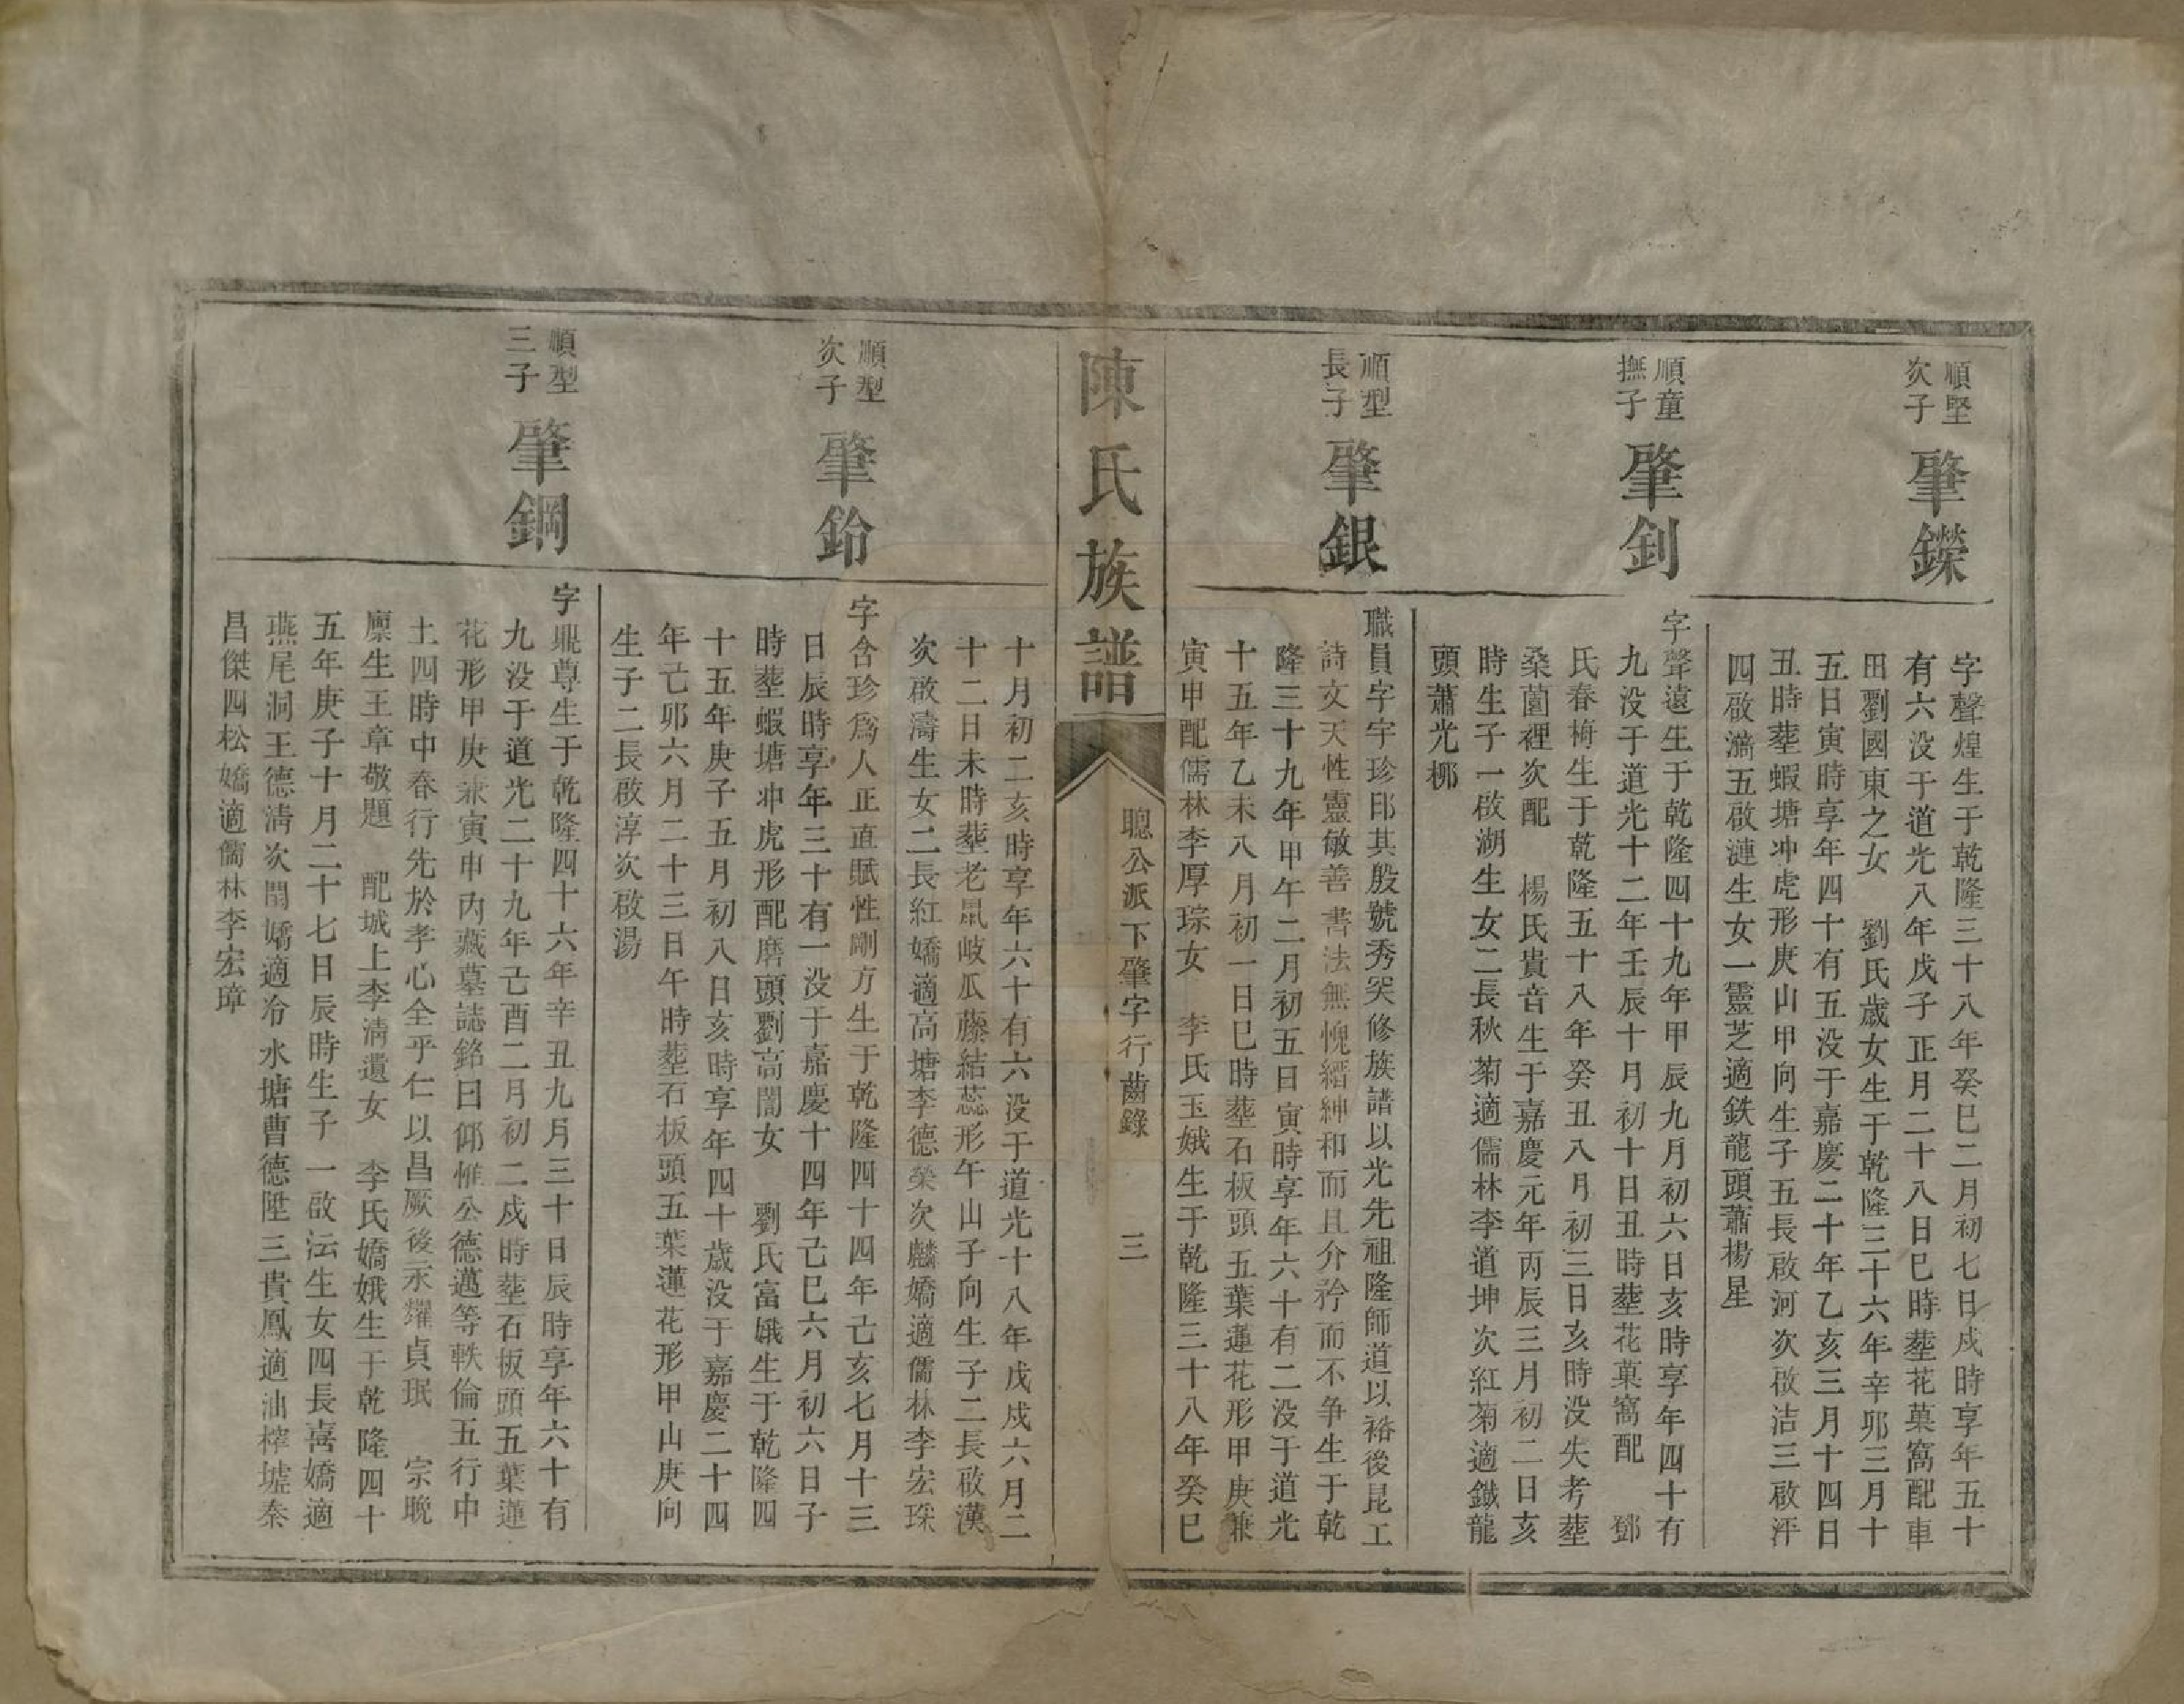 順堅
次子
肇鑅
字聲煌生于乾隆三十八年癸巳二月初七日戍時享年五十
有六没于道光八年戊子正月二十八日巳時塟花菓窩配車
田劉國東之女 劉氏歳女生于乾隆三十六年辛卯三月十
五日寅時享年四十有五没于嘉慶二十年乙亥三月十四日
丑時塟蝦塘冲虎形庚山甲向生子五長啟河次啟洁三啟泙
四啟漪五啟漣生女一靈芝適鉄龍頭蕭楊星
順童
撫子
肇釗
字聲遠生于乾隆四十九年甲辰九月初六日亥時享年四十有
九没于道光十二年壬辰十月初十日丑時塟花菓窩配 鄧
氏春梅生于乾隆五十八年癸丑八月初三日亥時没失考塟
桑園裡次配 楊氏貴音生于嘉慶元年丙辰三月初二日亥
時生子一啟湖生女二長秋菊適儒林李道坤次紅菊適鐵龍
頭蕭光梛
順型
長子
肇銀
職員字宇珍邱其殷號秀突修族譜以光先祖隆師道以裕後昆工
詩文天性靈敏善書法無愧縉紳和而且介矜而不争生于乾
隆三十九年甲午二月初五日寅時享年六十有二没于道光
十五年乙未八月初一日巳時塟石板頭五葉蓮花形甲庚兼
寅申配儒林李厚琮女 李氏玉娥生于乾隆三十八年癸巳
陳氏族譜
聰公派下肇字行齒錄 三
十月初二亥時享年六十有六没于道光十八年戊戍六月二
十二日未時塟老鼠岐瓜藤結蕊形午山子向生子二長啟漢
次啟濤生女二長紅嬌適高塘李德榮次麟嬌適儒林李宏琛
順型
次子
肇鈖
字含珍爲人正直賦性剛方生于乾隆四十四年己亥七月十三
日辰時享年三十有一没于嘉慶十四年己巳六月初六日子
時塟蝦塘冲虎形配磨頭劉高闇女 劉氏富娥生于乾隆四
十五年庚子五月初八日亥時享年四十歳没于嘉慶二十四
年己卯六月二十三日午時塟石板頭五葉蓮花形甲山庚向
生子二長啟淳次啟湯
順型
三子
肇鋼
字鼎尊生于乾隆四十六年辛丑九月三十日辰時享年六十有
九没于道光二十九年己酉二月初二戍時塟石板頭五葉蓮
花形甲庚兼寅申内藏墓誌銘曰仰惟公德邁等軼倫五行中
土四時中春行先於孝心全乎仁以昌厥後永耀貞珉 宗晚
廩生王章敬題 配城上李淸遺女 李氏嬌娥生于乾隆四十
五年庚子十月二十七日辰時生子一啟沄生女四長喜嬌適
燕尾洞王德淸次閏嬌適冷水塘曹德陞三貴鳳適油榨墟秦
昌傑四松嬌適儒林李宏璋